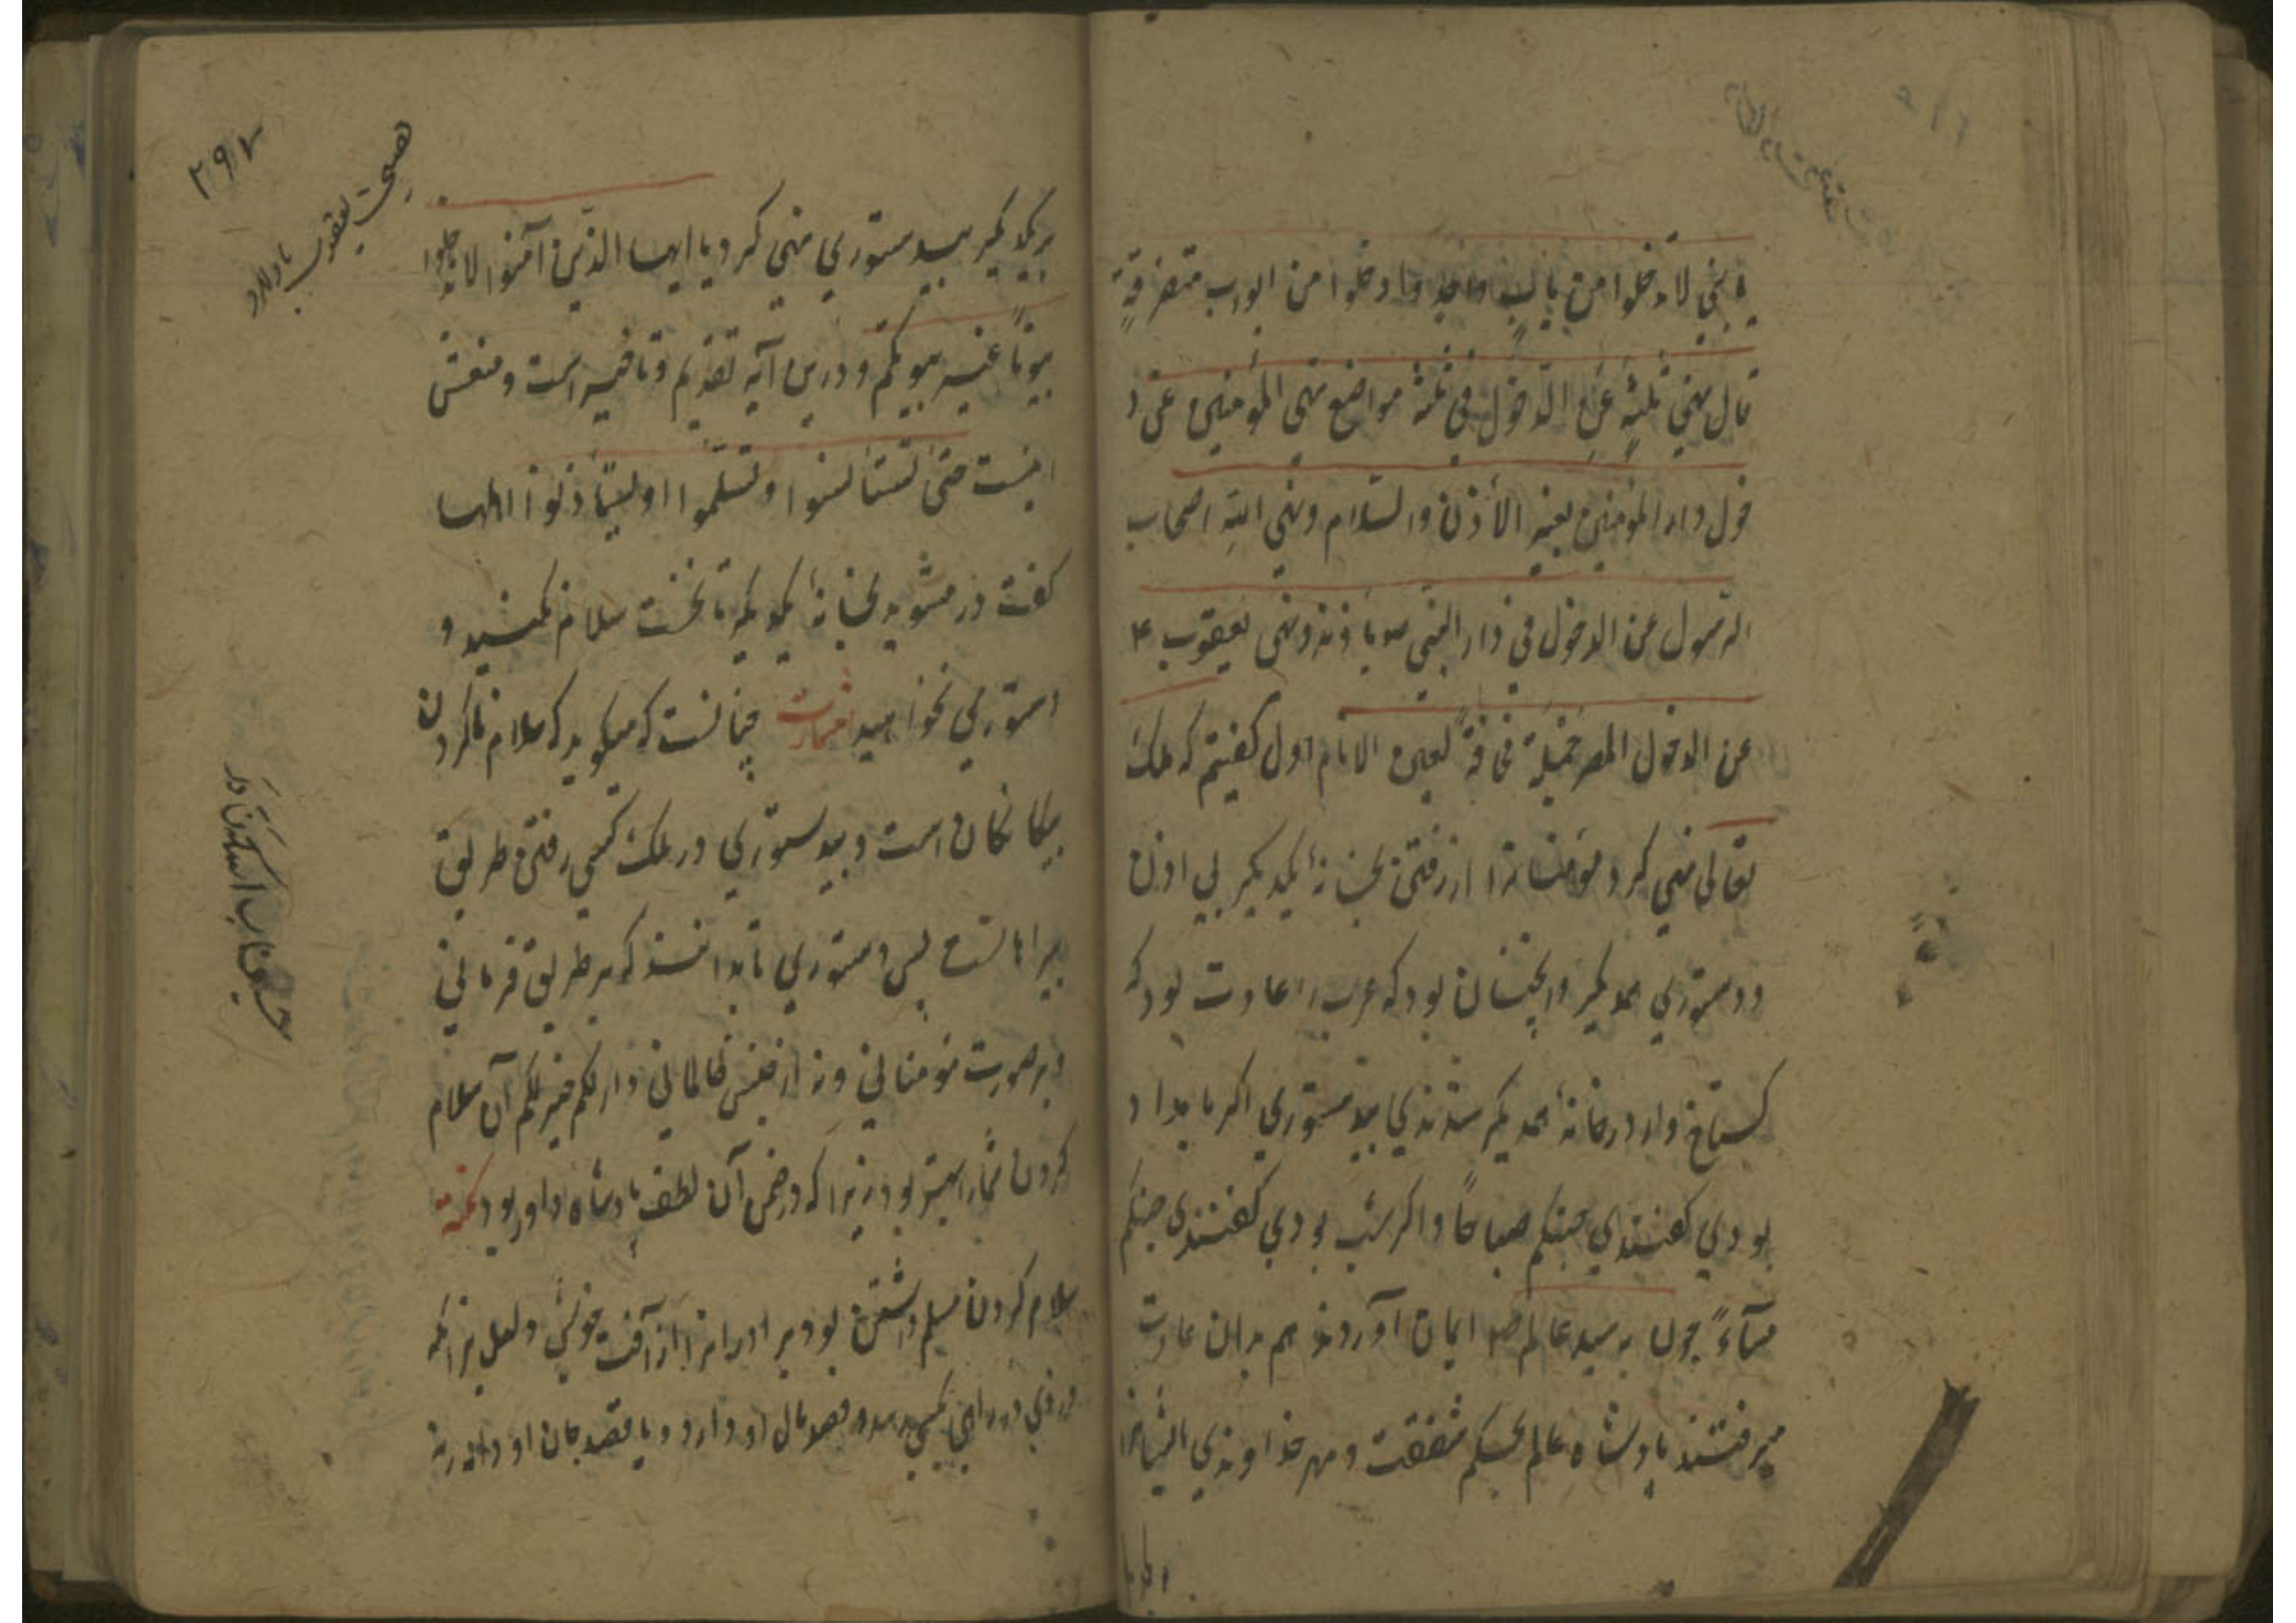 یا بنی لا تدخلوا من باب واحد وادخلوا من ابواب متفرقة
قال نهی ثلثة عن الدخول فی ثلثة مواضع نهی المؤمنین عن د
خول دار المؤمنین بغیر الأذن والسّلام ونهی الله اصحاب
الرسول عن الدخول فی دار النبی بلا اذنه ونهی یعقوب ع
عن الدخول المصر جملة مخافة لعین الانام اول گفتیم که ملک
تعالی نهی کرد مؤمنانرا از رفتن بخانهٔ یکدیگر بی اذن
ودستوری همدیگر واینچنان بود که عرب را عادت بود که
گستاخ وار در خانهٔ همدیگر شدندی بیدستوری اگر بامداد
بودی گفتندی حییتم صباحًا واگر شب بودی گفتندی حییتم
مسآءً چون به سید عالم صلعم ایمان آوردند هم بدان عادت
میرفتند پادشاه عالم بحکم شفقت ومهر خداوندی ایشانرا
بریکدیگر بیدستوری نهی کرد یا ایها الذین آمنوا لا تدخلوا
بیوتًا غیر بیوتکم ودرین آیه تقدیم وتاخیر است ومعنیش
اینست حتی تستأنسوا وتسلّموا او لیستأذنوا اهلها
گفت درمشوید بخانهٔ یکدیگر تا نخست سلام نکنید و
دستوری نخواهید اشارت چنانست که میگوید که سلام ناکردن
بیگانگان است وبیدستوری در ملک کسی رفتن طریق
بیراهانست پس دستوری تا بدانند که بر طریق فرمانی
وبر صورت مؤمنانی ونه از جنس ظالمانی ذلکم خیر لکم آن سلام
کردن شما را بهتر بود زیرا که در ضمن آن لطف پادشاه داور بود نکته
سلام کردن مسلم داشتن بود برادرانرا از آفت خویش ولعل بر آنکه
در راهی کسی قصد مال او دارد ویا قصد جان او دارد
۲۹۷
نهی یعقوب باولاد